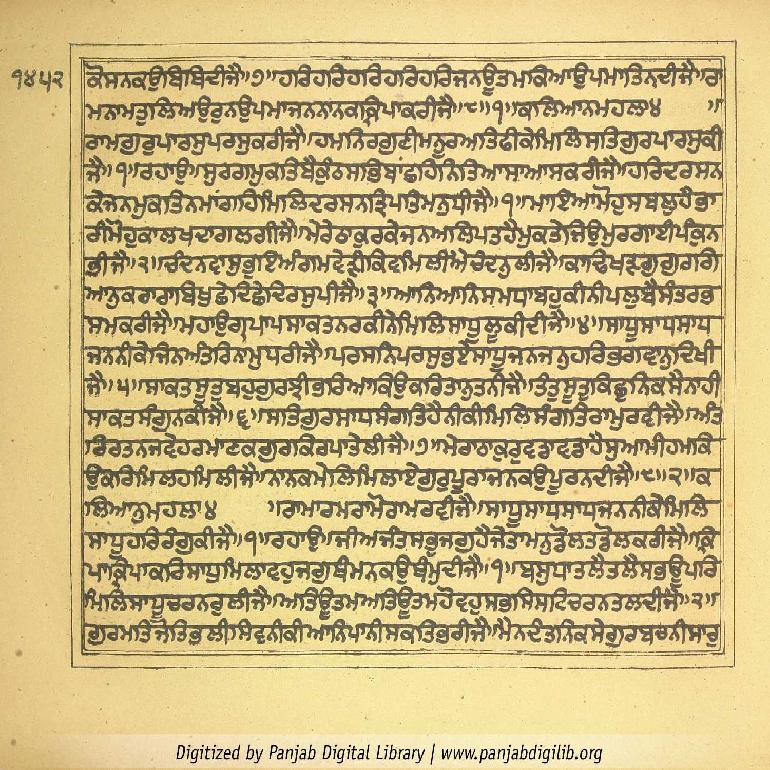 ੧੪੫੨
ਕੋਸਨਕਉਬਿਬਿਦੀਜੈ॥੭॥ਹਰਿਹਰਿਹਰਿਹਰਿਹਰਿਜਨਊਤਮਕਿਆਉਪਮਾਤਿਨਦੀਜੈ॥ਰਾ
ਮਨਾਮਤੁਲਿਅਉਰੁਨਉਪਮਾਜਨਨਾਨਕਕ੍ਰਿਪਾਕਰੀਜੈ॥੮॥੧॥ਕਲਿਆਨਮਹਲਾ੪ ॥
ਰਾਮਗੁਰੁਪਾਰਸੁਪਰਸੁਕਰੀਜੈ॥ਹਮਨਿਰਗੁਣੀਮਨੂਰਅਤਿਫੀਕੇਮਿਲਿਸਤਿਗੁਰਪਾਰਸੁਕੀ
ਜੈ॥੧॥ਰਹਾਉ॥ਸੁਰਗਮੁਕਤਿਬੈਕੁੰਠਸਭਿਬਾਂਛਹਿਨਿਤਿਆਸਾਆਸਕਰੀਜੈ॥ਹਰਿਦਰਸਨ
ਕੇਜਨਮੁਕਤਿਨਮਾਂਗਹਿਮਿਲਿਦਰਸਨਤ੍ਰਿਪਤਿਮਨੁਧੀਜੈ॥੧॥ਮਾਇਆਮੋਹੁਸਬਲੁਹੈਭਾ
ਰੀਮੋਹੁਕਾਲਖਦਾਗਲਗੀਜੈ॥ਮੇਰੇਠਾਕੁਰਕੇਜਨਅਲਿਪਤਹੈਮੁਕਤੇਜਿਉਮੁਰਗਾਈਪੰਕੁਨ
ਭੀਜੈ॥੨॥ਚੰਦਨਵਾਸੁਭੁਇਅੰਗਮਵੇੜੀਕਿਵਮਿਲੀਐਚੰਦਨੁਲੀਜੈ॥ਕਾਢਿਖੜਗੁਗੁਰਗਿ
ਆਨੁਕਰਾਰਾਬਿਖੁਛੇਦਿਛੇਦਿਰਸੁਪੀਜੈ॥੩॥ਆਨਿਆਨਿਸਮਧਾਬਹੁਕੀਨੀਪਲੁਬੈਸੰਤਰਭ
ਸਮਕਰੀਜੈ॥ਮਹਾਉਗ੍ਰਪਾਪਸਾਕਤਨਰਕੀਨੇਮਿਲਿਸਾਧੂਲੂਕੀਦੀਜੈ॥੪॥ਸਾਧੂਸਾਧਸਾਧ
ਜਨਨੀਕੇਜਿਨਅੰਤਰਿਨਾਮੁਧਰੀਜੈ॥ਪਰਸਨਿਪਰਸੁਭਏਸਾਧੂਜਨਜਨੁਹਰਿਭਗਵਾਨੁਦਿਖੀ
ਜੈ॥੫॥ਸਾਕਤਸੂਤੁਬਹੁਗੁਰਝੀਭਰਿਆਕਿਉਕਰਿਤਾਨੁਤਨੀਜੈ॥ਤੰਤੁਸੂਤੁਕਿਛੁਨਿਕਸੈਨਾਹੀ
ਸਾਕਤਸੰਗੁਨਕੀਜੈ॥੬॥ਸਤਿਗੁਰਸਾਧਸੰਗਤਿਹੈਨੀਕੀਮਿਲਿਸੰਗਤਿਰਾਮੁਰਵੀਜੈ॥ਅੰਤ
ਰਿਰਤਨਜਵੇਹਰਮਾਣਕਗੁਰਕਿਰਪਾਤੇਲੀਜੈ॥੭॥ਮੇਰਾਠਾਕੁਰੁਵਡਾਵਡਾਹੈਸੁਆਮੀਹਮਕਿ
ਉਕਰਿਮਿਲਹਮਿਲੀਜੈ॥ਨਾਨਕਮੇਲਿਮਿਲਾਏਗੁਰੁਪੂਰਾਜਨਕਉਪੂਰਨਦੀਜੈ॥੮॥੨॥ਕ
ਲਿਆਨੁਮਹਲਾ੪ ॥ਰਾਮਾਰਮਰਾਮੋਰਾਮਰਵੀਜੈ॥ਸਾਧੂਸਾਧਸਾਧਜਨਨੀਕੇਮਿਲਿ
ਸਾਧੂਹਰਿਰੰਗੁਕੀਜੈ॥੧॥ਰਹਾਉ॥ਜੀਅਜੰਤਸਭੁਜਗੁਹੈਜੇਤਾਮਨੁਡੋਲਤਡੋਲਕਰੀਜੈ॥ਕ੍ਰਿ
ਪਾਕ੍ਰਿਪਾਕਰਿਸਾਧੁਮਿਲਾਵਹੁਜਗੁਥੰਮਨਕਉਥੰਮੁਦੀਜੈ॥੧॥ਬਸੁਧਾਤਲੈਤਲੈਸਭਊਪਰਿ
ਮਿਲਿਸਾਧੂਚਰਨਰੁਲੀਜੈ॥ਅਤਿਊਤਮਅਤਿਊਤਮਹੋਵਹੁਸਭਸਿਸਟਿਚਰਨਤਲਦੀਜੈ॥੨॥
ਗੁਰਮੁਖਿਜੋਤਿਭਲੀਸਿਵਨੀਕੀਆਨਿਪਾਨੀਸਕਤਿਭਰੀਜੈ॥ਮੈਨਦੰਤਨਿਕਸੇਗੁਰਬਚਨੀਸਾਰੁ
Digitized by Panjab Digital Library | www.panjabdigilib.org